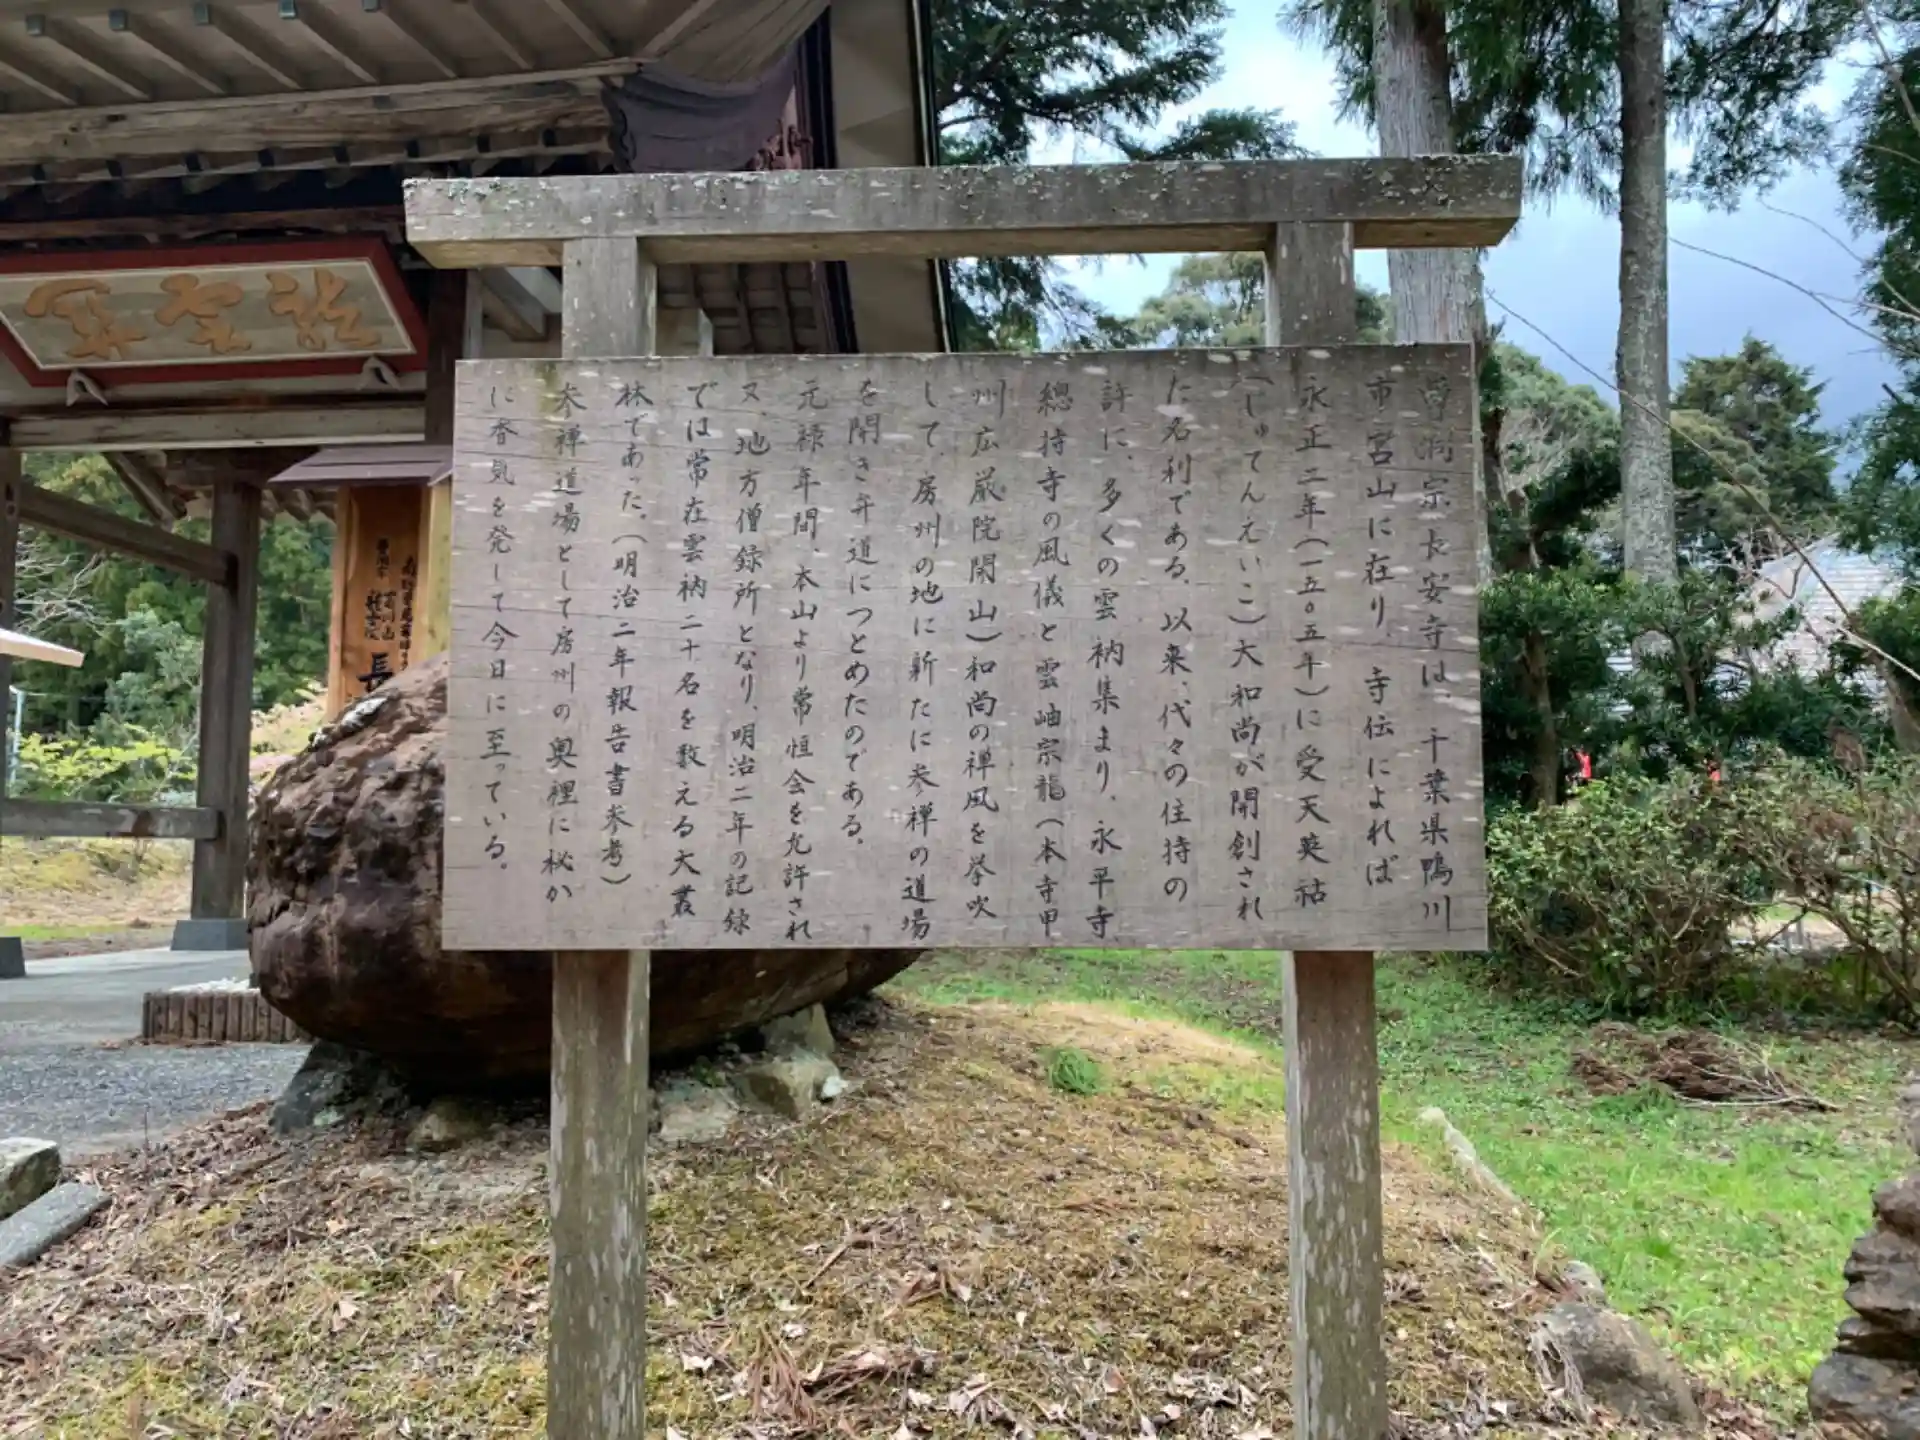 曹洞宗長安寺は、千葉県鴨川
市宮山に在り、寺伝によれば
永正二年(一五〇五年)に受天英祜
(じゅてんえいこ)大和尚が開創され
た名刹である。以来、代々の住持の
許に、多くの雲衲集まり、永平寺
總持寺の風儀と雲岫宗龍(本寺甲
州広厳院開山)和尚の禅風を挙吹
して、房州の地に新たに参禅の道場
を開き弁道につとめたのである。
元禄年間、本山より常恒会を允許され
又、地方僧録所となり、明治二年の記録
では常在雲衲二十名を数える大叢
林であった。(明治二年報告書参考)
参禅道場として房州の奥裡に秘か
に香気を発して今日に至っている。
龍雲
曹洞宗
長